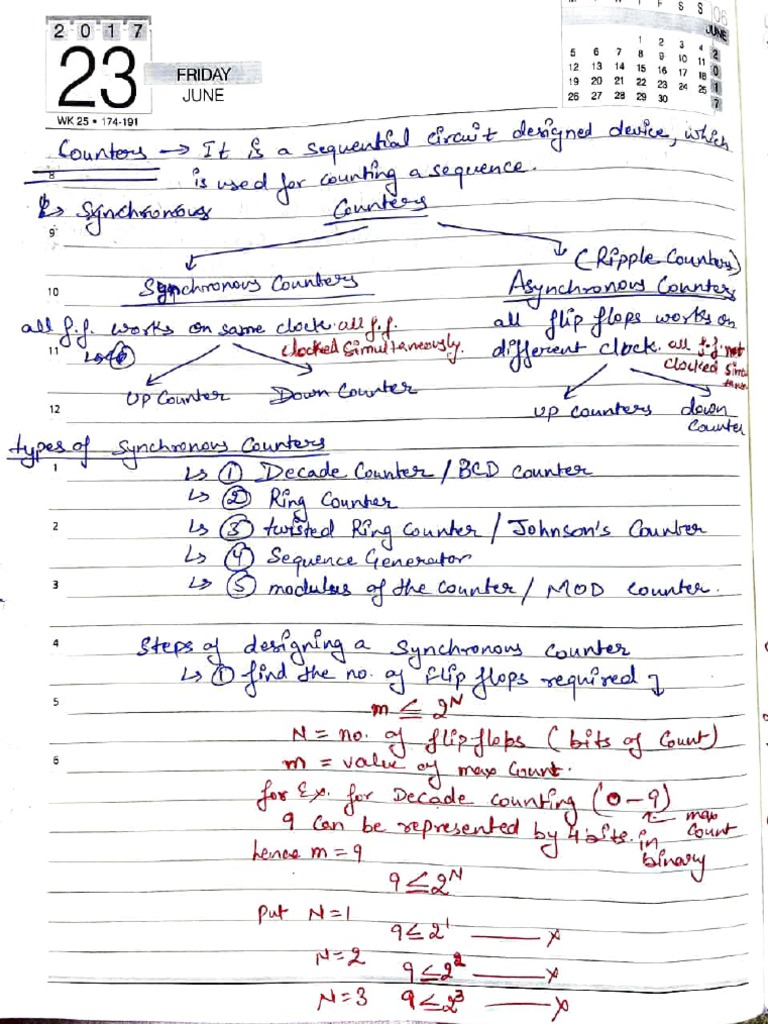 2 0 1 7
23
FRIDAY
JUNE
WK 25 • 174-191
F S S
06
JUNE
2017
1 2 3 4
5 6 7 8 9 10 11
12 13 14 15 16 17 18
19 20 21 22 23 24 25
26 27 28 29 30
Counters → It is a sequential circuit designed device, which
8
is used for counting a sequence.
↳ Synchronous Counters
9
(Ripple Counters)
10 Synchronous Counters Asynchronous Counters
all f.f. works on same clock. all f.f. all flip flops works on
11 clocked simultaneously. different clock. all f.f. not
clocked simul
taneo
UP Counter Down Counter
12 UP counters down
Counter
types of Synchronous Counters
1 ↳ ① Decade Counter / BCD counter
↳ ② Ring Counter
2 ↳ ③ twisted Ring Counter / Johnson's Counter
↳ ④ Sequence Generator
3 ↳ ⑤ modulus of the counter / MOD counter.
4 Steps of designing a Synchronous Counter
↳ ① find the no. of flip flops required
5 m ≤ 2^N
N = no. of flip flops (bits of Count)
6 m = value of max Count.
for Ex. for Decade counting (0 - 9)
max
Count
9 can be represented by 4 bits in
binary
hence m = 9
9 ≤ 2^N
Put N = 1 9 ≤ 2^1 —— x
N = 2 9 ≤ 2^2 —— x
N = 3 9 ≤ 2^3 —— x